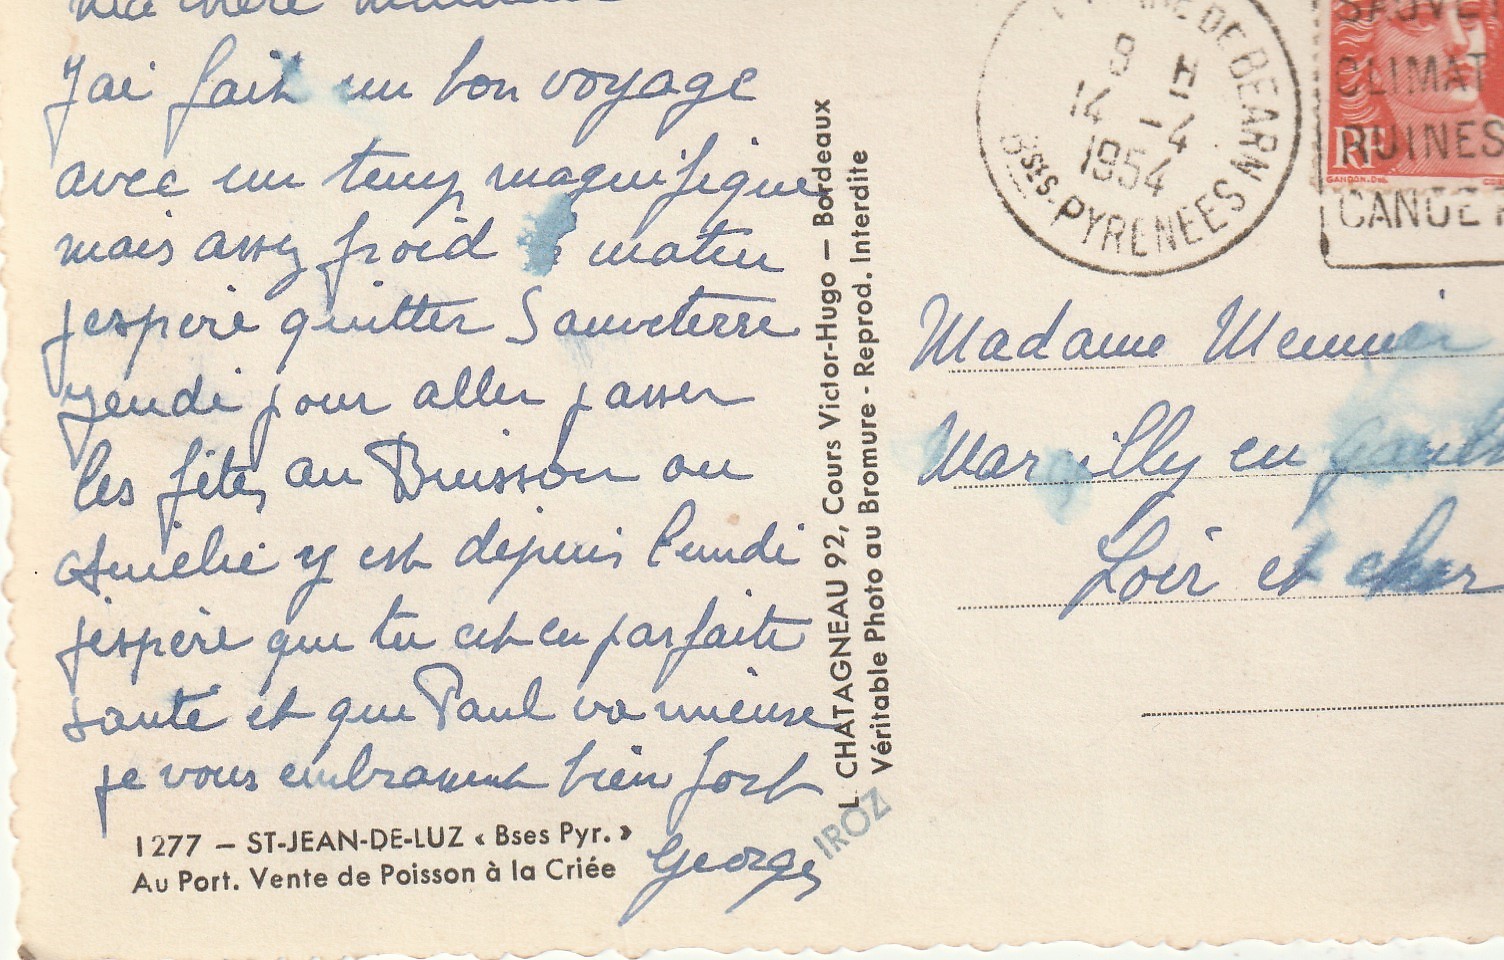 Ma chère
J'ai fait un bon voyage
avec un temps magnifique
mais assez froid matin
j'espère quitter Sauveterre
jeudi pour aller passer
les fêtes au Buisson ou
Amélie y est depuis lundi
j'espère que tu est en parfaite
santé et que Paul va mieux
je vous embrassent bien fort
Georges
1277 – ST-JEAN-DE-LUZ « Bses Pyr. »
Au Port. Vente de Poisson à la Criée
L. CHATAGNEAU 92, Cours Victor-Hugo – Bordeaux
Véritable Photo au Bromure - Reprod. Interdite
IROZ
DE BEARN
8 H
14 - 4
1954
Bses-PYRENEES
SAUVE
CLIMAT
RUINES
CANOE
RF
GANDON.Del.
Madame Meunier
Marcilly en
Loir et cher